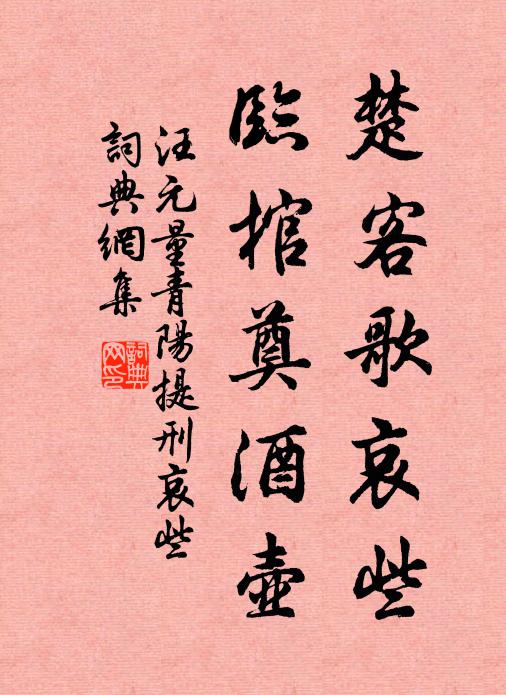 楚客歌哀些
臨棺奠酒壺
汪元量青陽提刑哀些
詞典網集
詞典網印